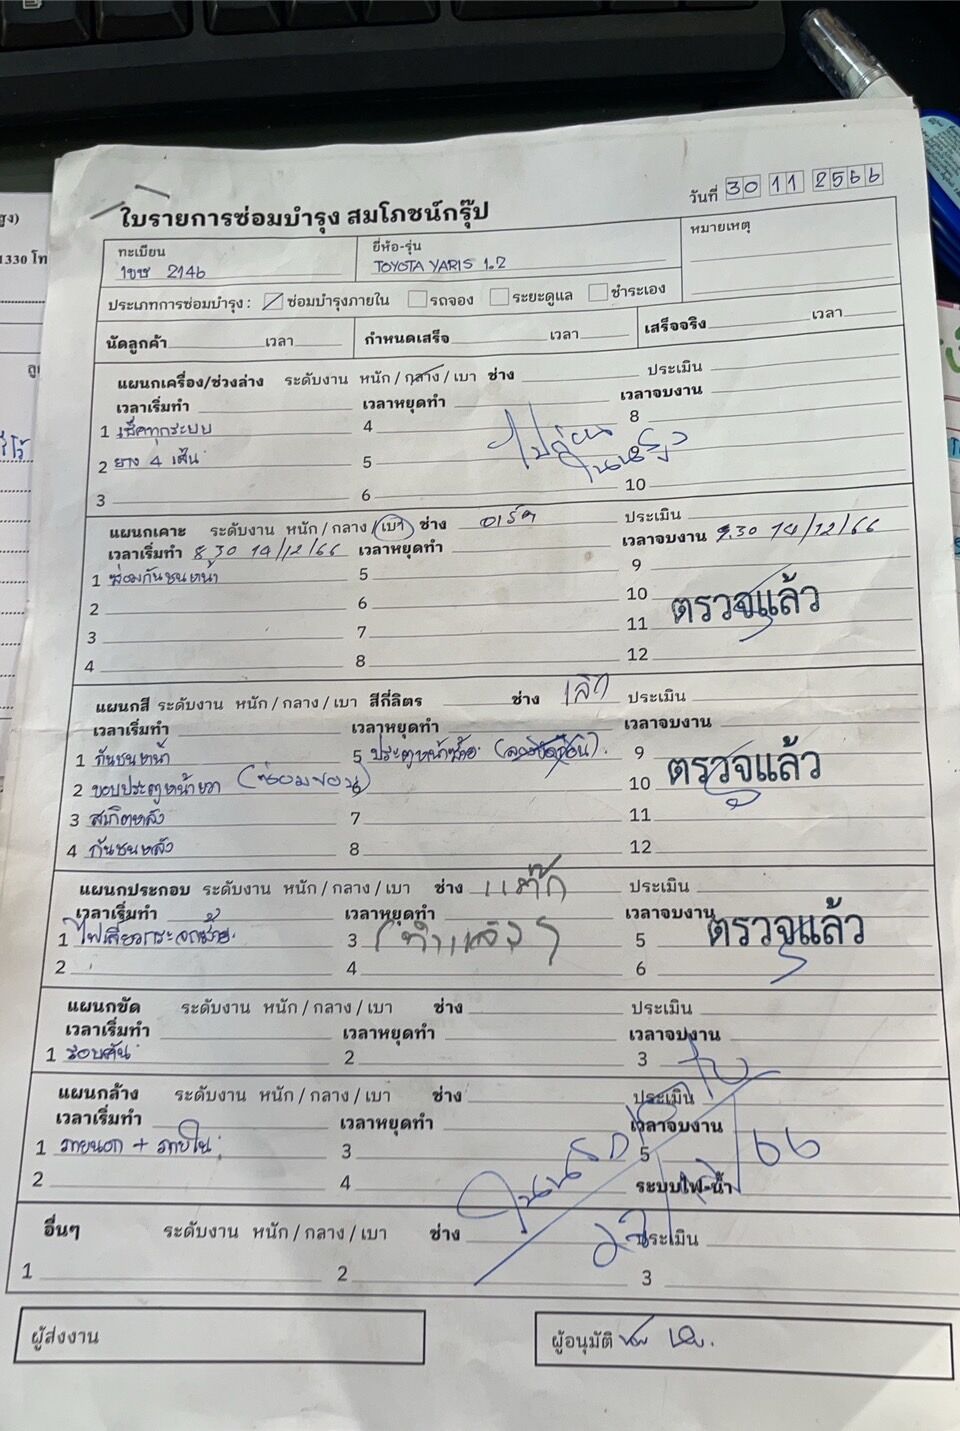 สูง)
1330 โท
ใบรายการซ่อมบำรุง สมโภชน์กรุ๊ป
วันที่ 30 11 2566
ทะเบียน
1ขช 2146
ยี่ห้อ-รุ่น
TOYOTA YARIS 1.2
หมายเหตุ
ประเภทการซ่อมบำรุง : ซ่อมบำรุงภายใน รถจอง ระยะดูแล ชำระเอง
นัดลูกค้า เวลา กำหนดเสร็จ เวลา เสร็จจริง เวลา
แผนกเครื่อง/ช่วงล่าง ระดับงาน หนัก / กลาง / เบา ช่าง ประเมิน
เวลาเริ่มทำ เวลาหยุดทำ เวลาจบงาน
1 เช็คทุกระบบ 4 8
2 ยาง 4 เส้น 5
3 6 10
แผนกเคาะ ระดับงาน หนัก / กลาง / เบา ช่าง อาร์ต ประเมิน
เวลาเริ่มทำ 8.30 14/12/66 เวลาหยุดทำ เวลาจบงาน 9.30 14/12/66
1 ซ่อมกันชนหน้า 5 9
2 6 10 ตรวจแล้ว
3 7 11
4 8 12
แผนกสี ระดับงาน หนัก / กลาง / เบา สีกี่ลิตร ช่าง ประเมิน
เวลาเริ่มทำ เวลาหยุดทำ เวลาจบงาน
1 กันชนหน้า 5 ประตูหน้าซ้าย 9
2 ขอบประตูหน้าขวา (ซ่อมขอบ) 6 10 ตรวจแล้ว
3 สเกิตหลัง 7 11
4 กันชนหลัง 8 12
แผนกประกอบ ระดับงาน หนัก / กลาง / เบา ช่าง ประเมิน
เวลาเริ่มทำ เวลาหยุดทำ เวลาจบงาน
1 ไฟเลี้ยวกระจกซ้าย 3 (ทำแล้ว) 5 ตรวจแล้ว
2 4 6
แผนกขัด ระดับงาน หนัก / กลาง / เบา ช่าง ประเมิน
เวลาเริ่มทำ เวลาหยุดทำ เวลาจบงาน
1 รอบคัน 2 3
แผนกล้าง ระดับงาน หนัก / กลาง / เบา ช่าง ประเมิน
เวลาเริ่มทำ เวลาหยุดทำ เวลาจบงาน
1 ภายนอก + ภายใน 3 5
2 4 ระบบไฟ-น้ำ
อื่นๆ ระดับงาน หนัก / กลาง / เบา ช่าง ประเมิน
1 2 3
ผู้ส่งงาน
ผู้อนุมัติ